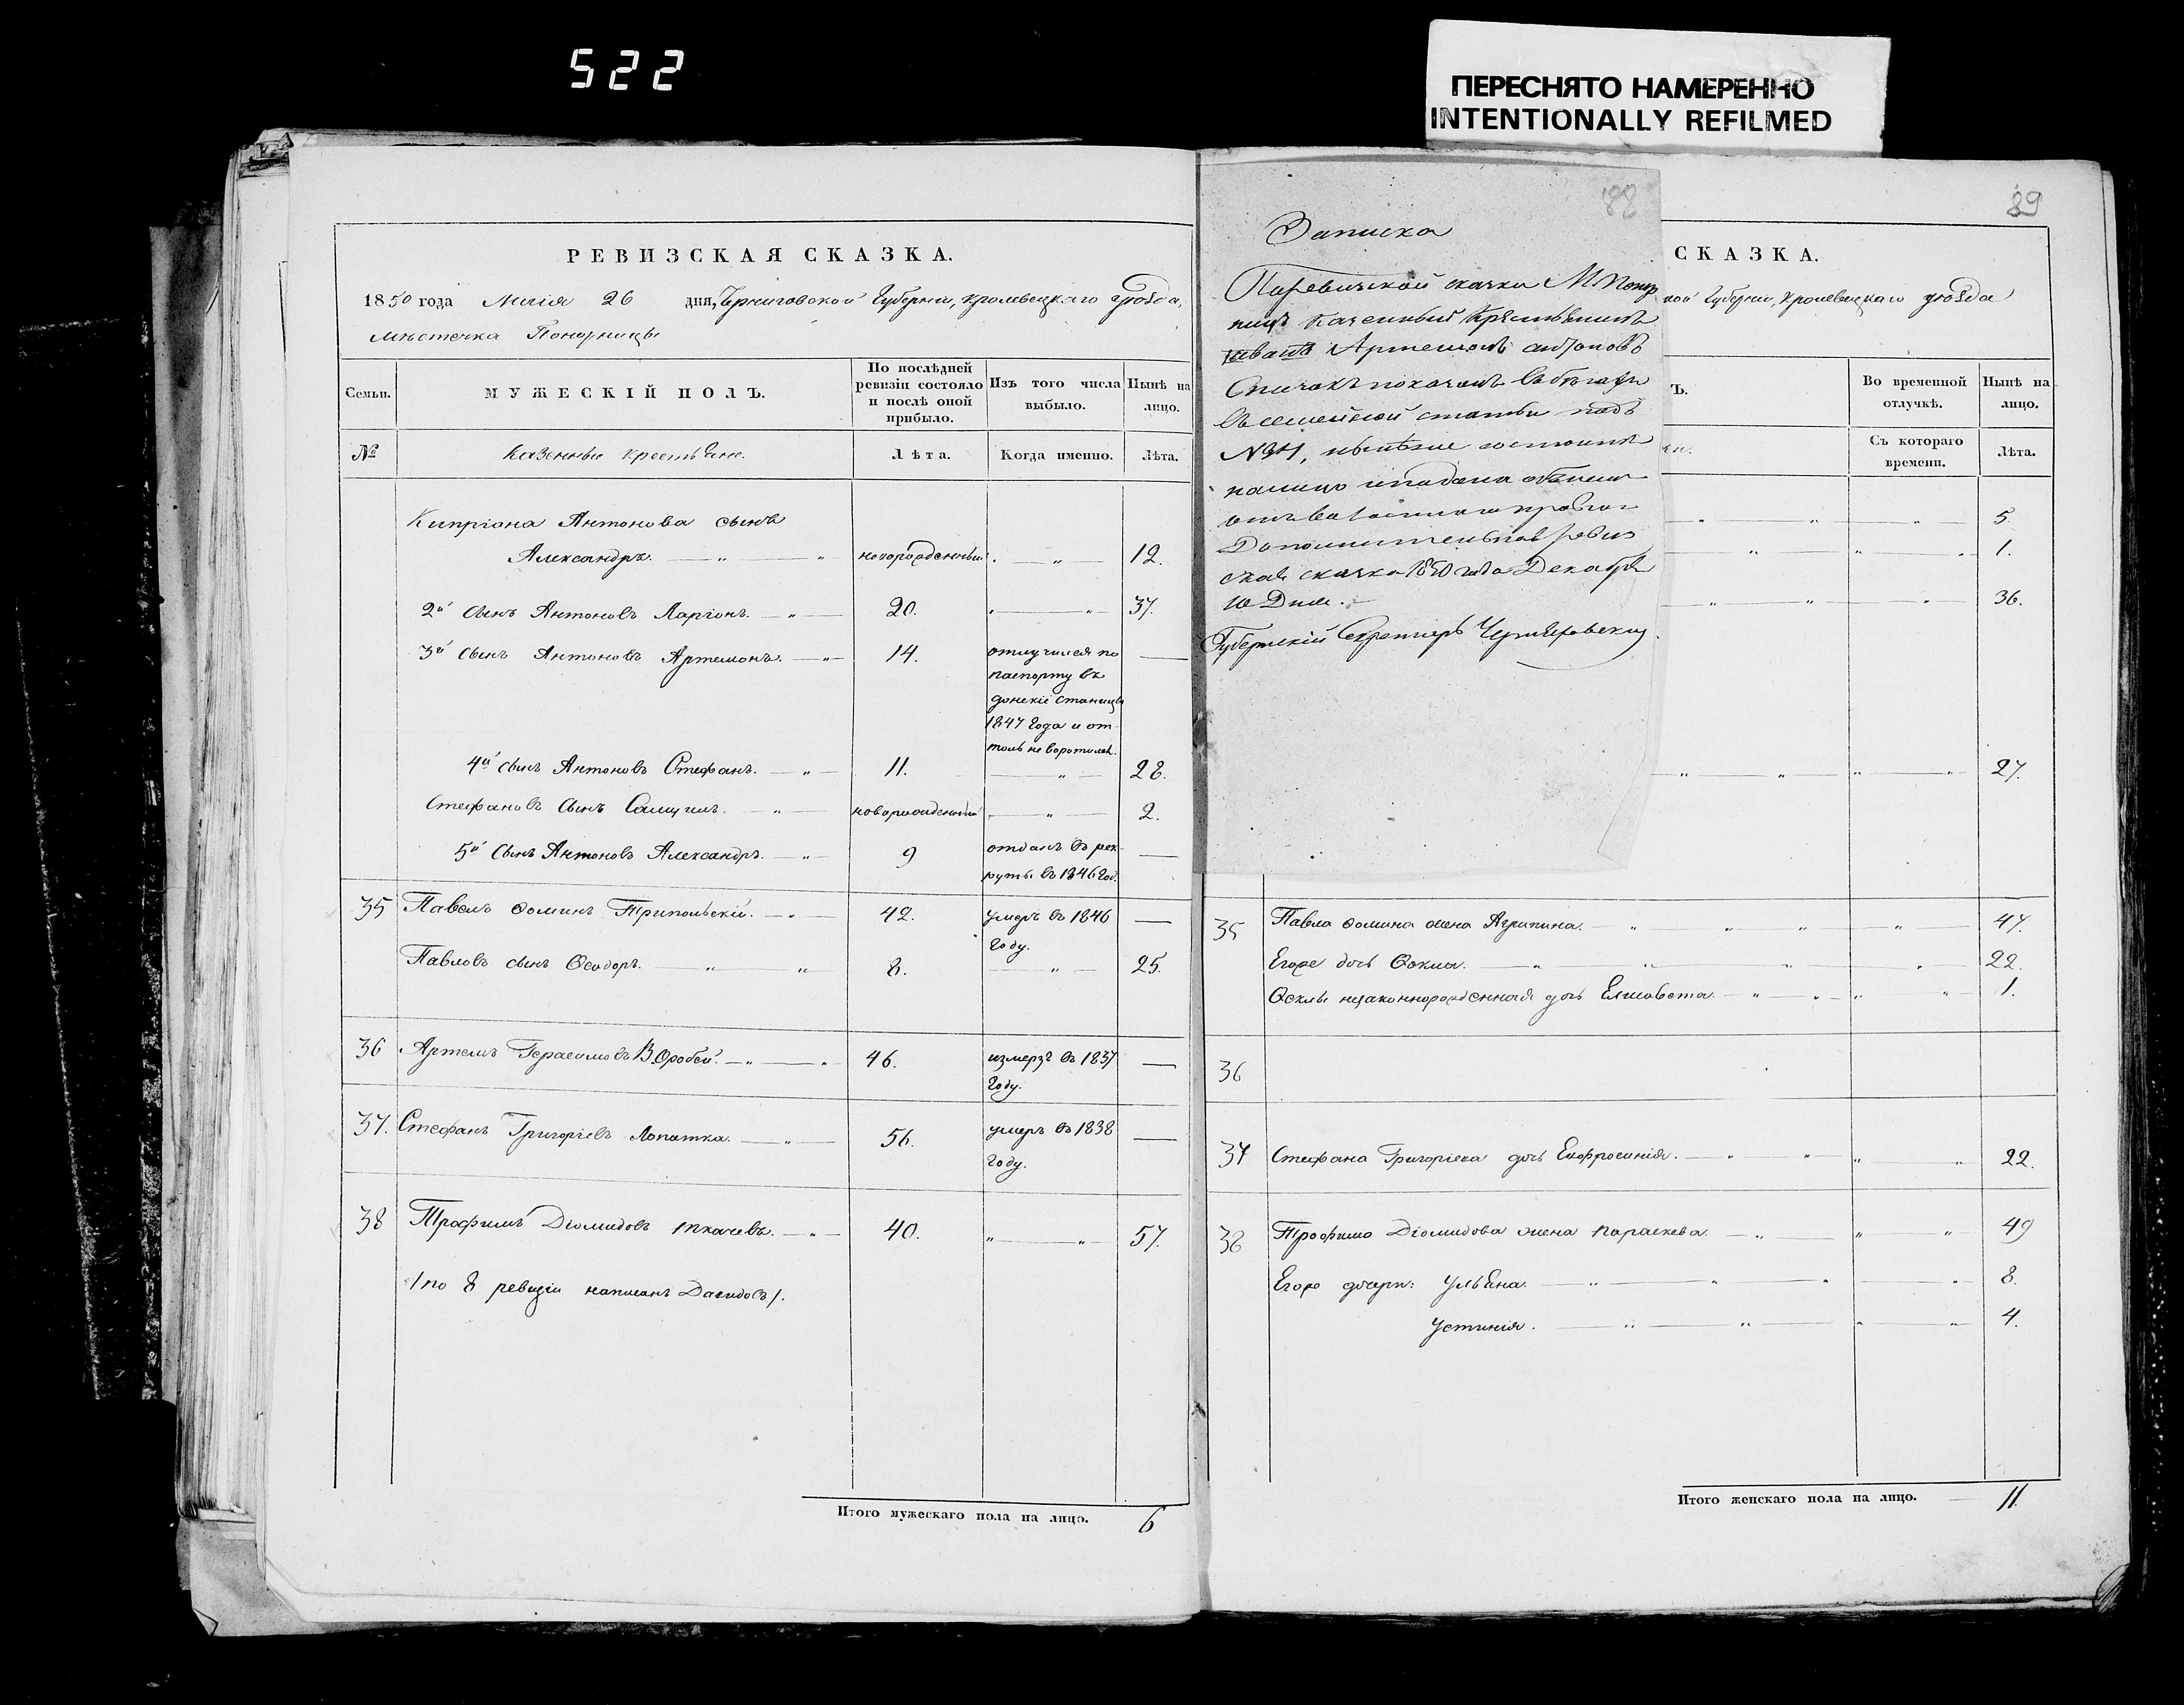 522
ПЕРЕСНЯТО НАМЕРЕННО
INTENTIONALLY REFILMED
РЕВИЗСКАЯ СКАЗКА.
1850 года Маія 26 дня, Черниговской Губерніи, Кролевецкаго уѣзда,
мѣстечка Понорницы
Семьи.
МУЖЕСКІЙ ПОЛЪ.
По послѣдней ревизіи состояло и послѣ оной прибыло.
Изъ того числа выбыло.
Нынѣ на лицо.
№
Казенные крестьяне.
Лѣта.
Когда именно.
Лѣта.
Кипріяна Антонова сынъ
Александръ. новорожденный 12.
2й сынъ Антоновъ Ларіонъ. 20. 37.
3й сынъ Антоновъ Артемонъ. 14. отлучился по
паспорту въ
донскіе станицы
1847 года и от-
толь не воротился.
4й сынъ Антоновъ Стефанъ. 11. 28.
Стефановъ сынъ Самуилъ. новорожденный 2.
5й сынъ Антоновъ Александръ. 9 отданъ въ рек-
руты въ 1846 год.
35 Павелъ Ѳоминъ Трипольскій. 42. умеръ въ 1846
году.
Павловъ сынъ Ѳеодоръ. 8. 25.
36 Артемъ Герасимовъ Воробей. 46. измерзъ въ 1837
году.
37. Стефанъ Григорьевъ Лопатка. 56. умеръ въ 1838
году.
38 Трофимъ Діомидовъ Ткачевъ. 40. 57.
/по 8 ревизіи написанъ Давидовъ/.
Итого мужескаго пола на лицо. 6
88
Записка
По ревизской сказки М. Понор
ницъ казенный крестьянинъ
Артемонъ Антоновъ
показанъ въ бѣгахъ
въ семейной статьи подъ
№34, нынѣ состоитъ
налицо и подана объ немъ
отъ волостнаго правлен
Дополнительная ревиз
ская сказка 1850 года Декабря
10 Дня.
Губернскій Секретарь
89
СКАЗКА.
кой Губерніи, Кролевецкаго уѣзда
Ъ.
Во временной отлучкѣ.
Нынѣ на лицо.
Съ котораго времени.
Лѣта.
5.
1.
36.
27.
35 Павла Ѳомина жена Агрипина. 47.
Егоже дочь Ѳекла. 22.
Ѳеклы незаконнорожденная дочь Елисавета. 1.
36
37 Стефана Григоріева дочь Евфросинія. 22.
38 Трофима Діомидова жена Параскева. 49
Егоже дочери: Ульяна. 8.
Устинія. 4.
Итого женскаго пола на лицо. 11.